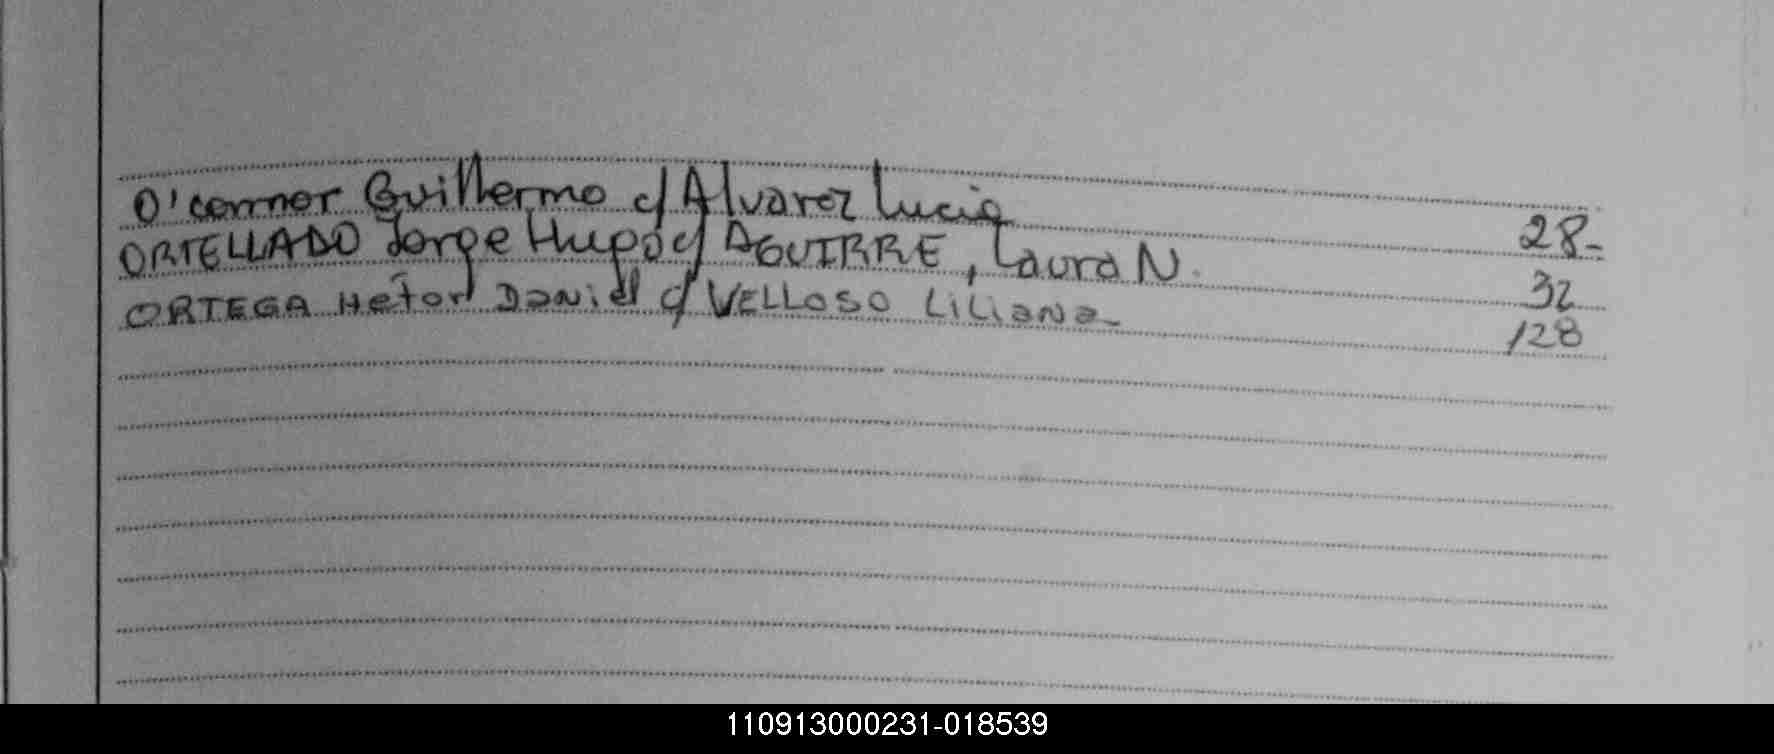 O'connor Guillermo c/ Alvarez Lucia 28-
ORTELLADO Jorge Hugo c/ AGUIRRE, Laura N. 32
ORTEGA Hetor Daniel c/ VELLOSO Liliana- 128
110913000231-018539